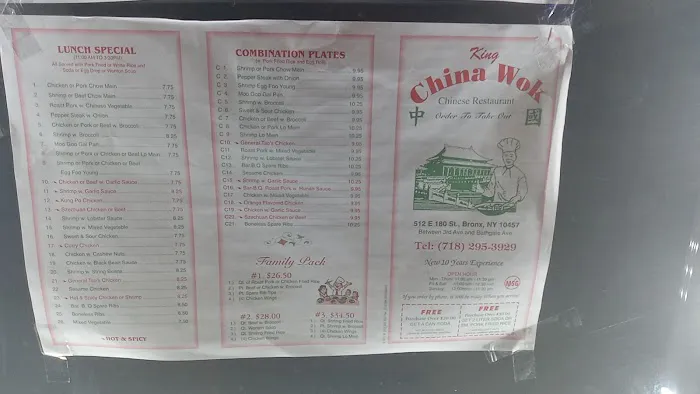 LUNCH SPECIAL
(11:00AM TO 3:30PM)
All Served with Pork Fried or White Rice and
Soda or Egg Drop or Wonton Soup
1. Chicken or Pork Chow Mein 7.75
2. Shrimp or Beef Chow Mein 7.75
3. Roast Pork w. Chinese Vegetable 7.75
4. Pepper Steak w. Onion 7.75
5. Chicken or Pork w. Broccoli 7.75
6. Shrimp w. Broccoli
7. Moo Goo Gai Pan
8. Shrimp or Pork or Chicken or Beef Lo Mein
9. Shrimp or Pork or Chicken or Beef
Egg Foo Young 7.75
10. Chicken or Beef w. Garlic Sauce 7.75
11. Shrimp w. Garlic Sauce
12. Kung Po Chicken 7.75
13. Szechuan Chicken or Beef 7.75
14. Shrimp w. Lobster Sauce 8.25
15. Shrimp w. Mixed Vegetable 8.25
16. Sweet & Sour Chicken 7.75
17. Curry Chicken 7.75
18. Chicken w. Cashew Nuts 7.75
19. Chicken w. Black Bean Sauce 7.75
20. Shrimp w. String Beans 8.25
21. General Tso's Chicken
22. Sesame Chicken 8.25
23. Hot & Spicy Chicken or Shrimp
24. Bar-B-Q Spare Ribs
25. Boneless Ribs
26. Mixed Vegetable
HOT & SPICY
COMBINATION PLATES
(w. Pork Fried Rice and Egg Roll)
C 1. Shrimp or Pork Chow Mein 9.95
C 2. Pepper Steak with Onion 9.95
C 3. Shrimp Egg Foo Young 9.95
C 4. Moo Goo Gai Pan 9.95
C 5. Shrimp w. Broccoli 10.25
C 6. Sweet & Sour Chicken 9.95
C 7. Chicken or Beef w. Broccoli 9.95
C 8. Chicken or Pork Lo Mein 9.95
C 9. Shrimp Lo Mein 10.25
C10. General Tso's Chicken 9.95
C11. Roast Pork w. Mixed Vegetable 9.95
C12. Shrimp w. Lobster Sauce 10.25
C13. Bar.B.Q Spare Ribs 10.25
C14. Sesame Chicken 9.95
C15. Shrimp w. Garlic Sauce 10.25
C16. Bar.B.Q. Roast Pork w. Hunan Sauce 9.95
C17. Chicken w. Mixed Vegetable 9.95
C18. Orange Flavored Chicken 9.95
C19. Chicken w. Garlic Sauce 9.95
C20. Szechuan Chicken or Beef 9.95
C21. Boneless Spare Ribs 10.25
Family Pack
#1. $26.50
Qt. of Roast Pork or Chicken Fried Rice
Pt. Beef or Chicken w. Broccoli
Pt. Spare Rib Tips
Chicken Wings
#2. $28.00
Qt. Beef w. Broccoli
Qt. Wonton Soup
Qt. Shrimp Fried Rice
Chicken Wings
#3. $34.50
Qt. Shrimp Fried Rice
Pt. Shrimp w. Broccoli
Chicken Wings
Qt. Shrimp Lo Mein
King
China Wok
Chinese Restaurant
中 Order To Take Out 國
512 E 180 St., Bronx, NY 10457
Between 3rd Ave and Bathgate Ave
Tel: (718) 295-3929
New 20 Years Experience
OPEN HOUR
NO MSG
FREE
FREE